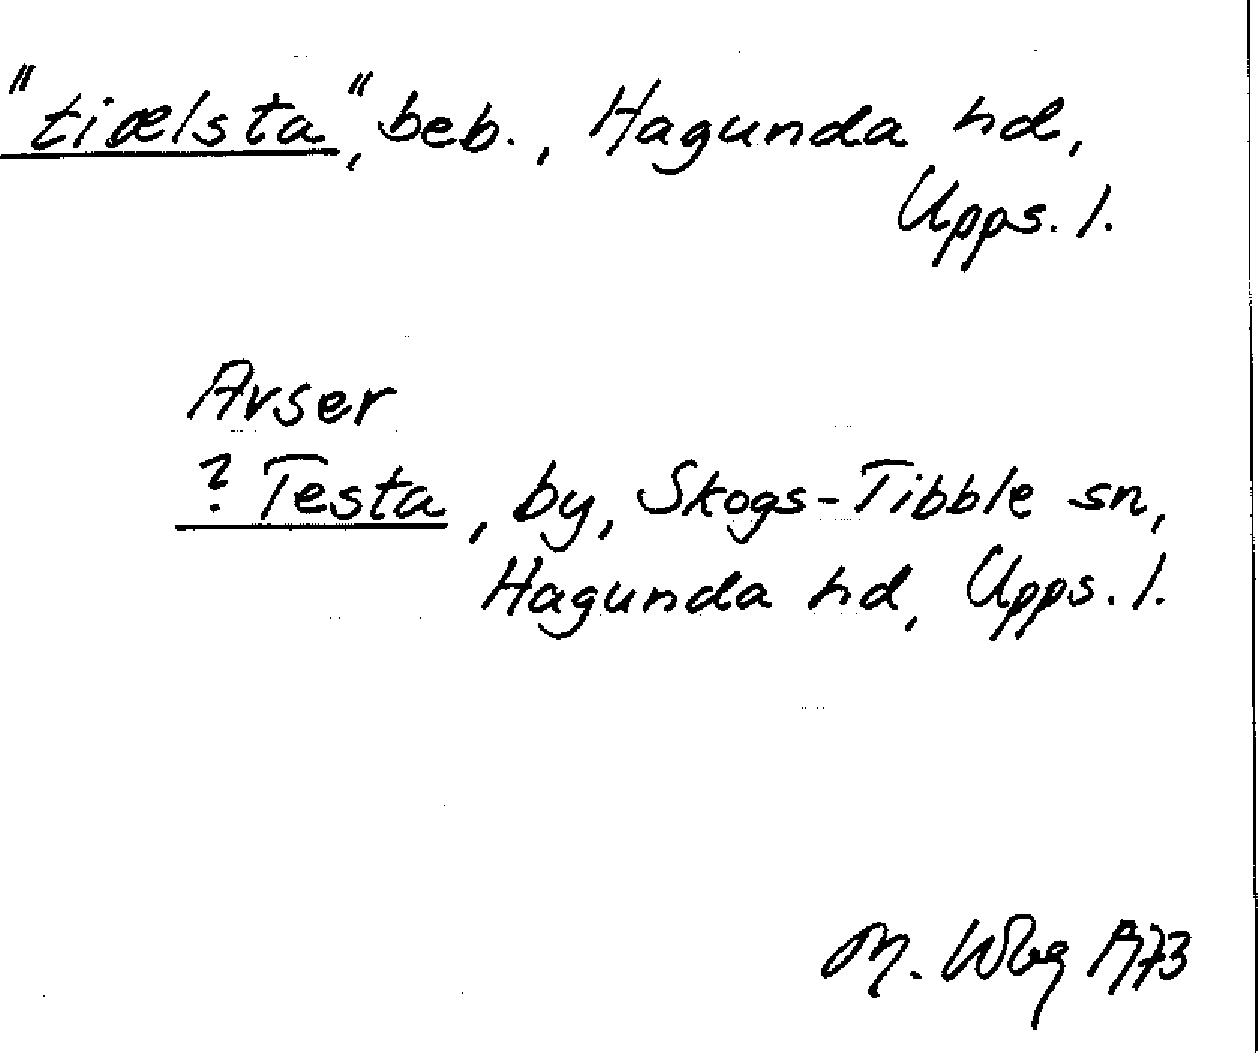 "tiælsta", beb., Hagunda hd,
Upps. l.
Avser
? Testa, by, Skogs-Tibble sn,
Hagunda hd, Upps. l.
M. Wbg